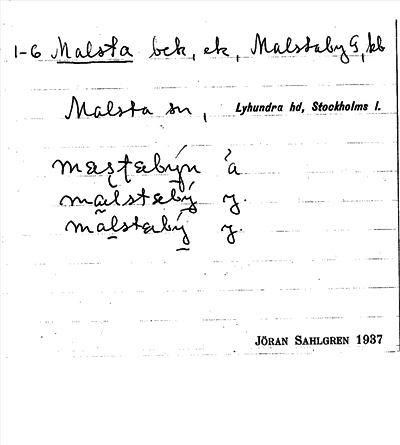 1-6 Malsta bck, ek, Malstaby G, kb
Malsta sn, Lyhundra hd, Stockholms l.
mas̨ţabýn à
malstabý y.
mālstabý y.
JÖRAN SAHLGREN 1937